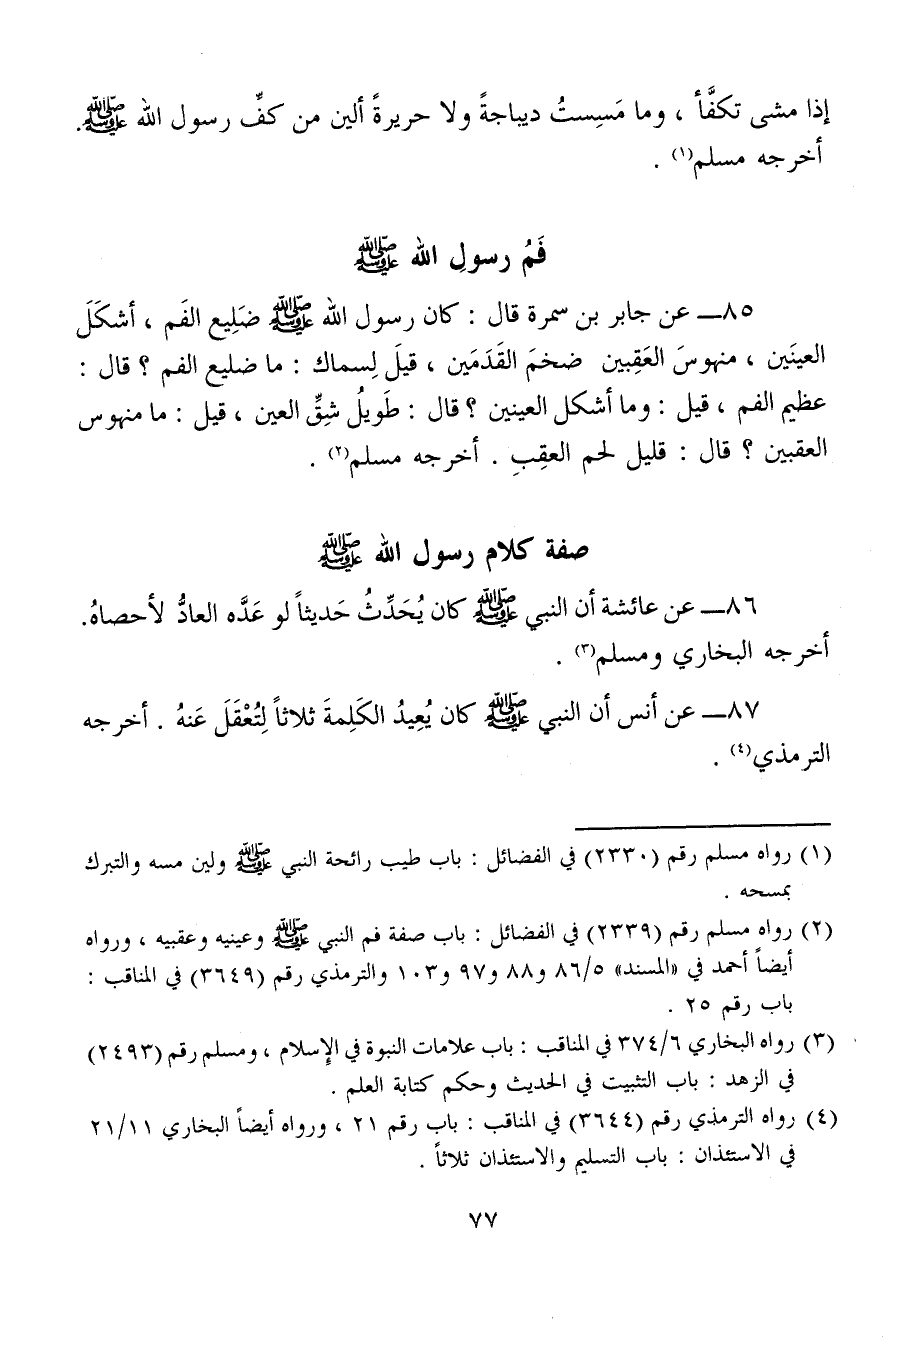 إذا مشى تكفَّأ ، وما مَسِستُ ديباجةً ولا حريرةً ألين من كفِّ رسول الله ﷺ.
أخرجه مسلم(١) .
فَمُ رسولِ الله ﷺ
٨٥ــ عن جابر بن سمرة قال : كان رسول الله ﷺ ضَلِيع الفَم ، أشكَلَ
العينَين ، منهوسَ العَقِبين ضخمَ القَدَمَين ، قيلَ لِسماك : ما ضليع الفم ؟ قال :
عظيم الفم ، قيل : وما أشكل العينين ؟ قال : طَويلُ شِقِّ العين ، قيل : ما منهوس
العقبين ؟ قال : قليل لحم العقِبِ . أخرجه مسلم(٢) .
صفة كلام رسول الله ﷺ
٨٦ــ عن عائشة أن النبي ﷺ كان يُحَدِّثُ حَديثاً لو عَدَّه العادُّ لأحصاهُ.
أخرجه البخاري ومسلم(٣) .
٨٧ــ عن أنس أن النبي ﷺ كان يُعِيدُ الكَلِمةَ ثلاثاً لِتُعْقَلَ عَنهُ . أخرجه
الترمذي(٤) .
(١) رواه مسلم رقم (٢٣٣٠) في الفضائل : باب طيب رائحة النبي ﷺ ولين مسه والتبرك
بمسحه .
(٢) رواه مسلم رقم (٢٣٣٩) في الفضائل : باب صفة فم النبي ﷺ وعينيه وعقبيه ، ورواه
أيضاً أحمد في «المسند» ٨٦/٥ و٨٨ و٩٧ و١٠٣ والترمذي رقم (٣٦٤٩) في المناقب :
باب رقم ٢٥ .
(٣) رواه البخاري ٣٧٤/٦ في المناقب : باب علامات النبوة في الإسلام ، ومسلم رقم (٢٤٩٣)
في الزهد : باب التثبيت في الحديث وحكم كتابة العلم .
(٤) رواه الترمذي رقم (٣٦٤٤) في المناقب : باب رقم ٢١ ، ورواه أيضاً البخاري ٢١/١١
في الاستئذان : باب التسليم والاستئذان ثلاثاً .
٧٧